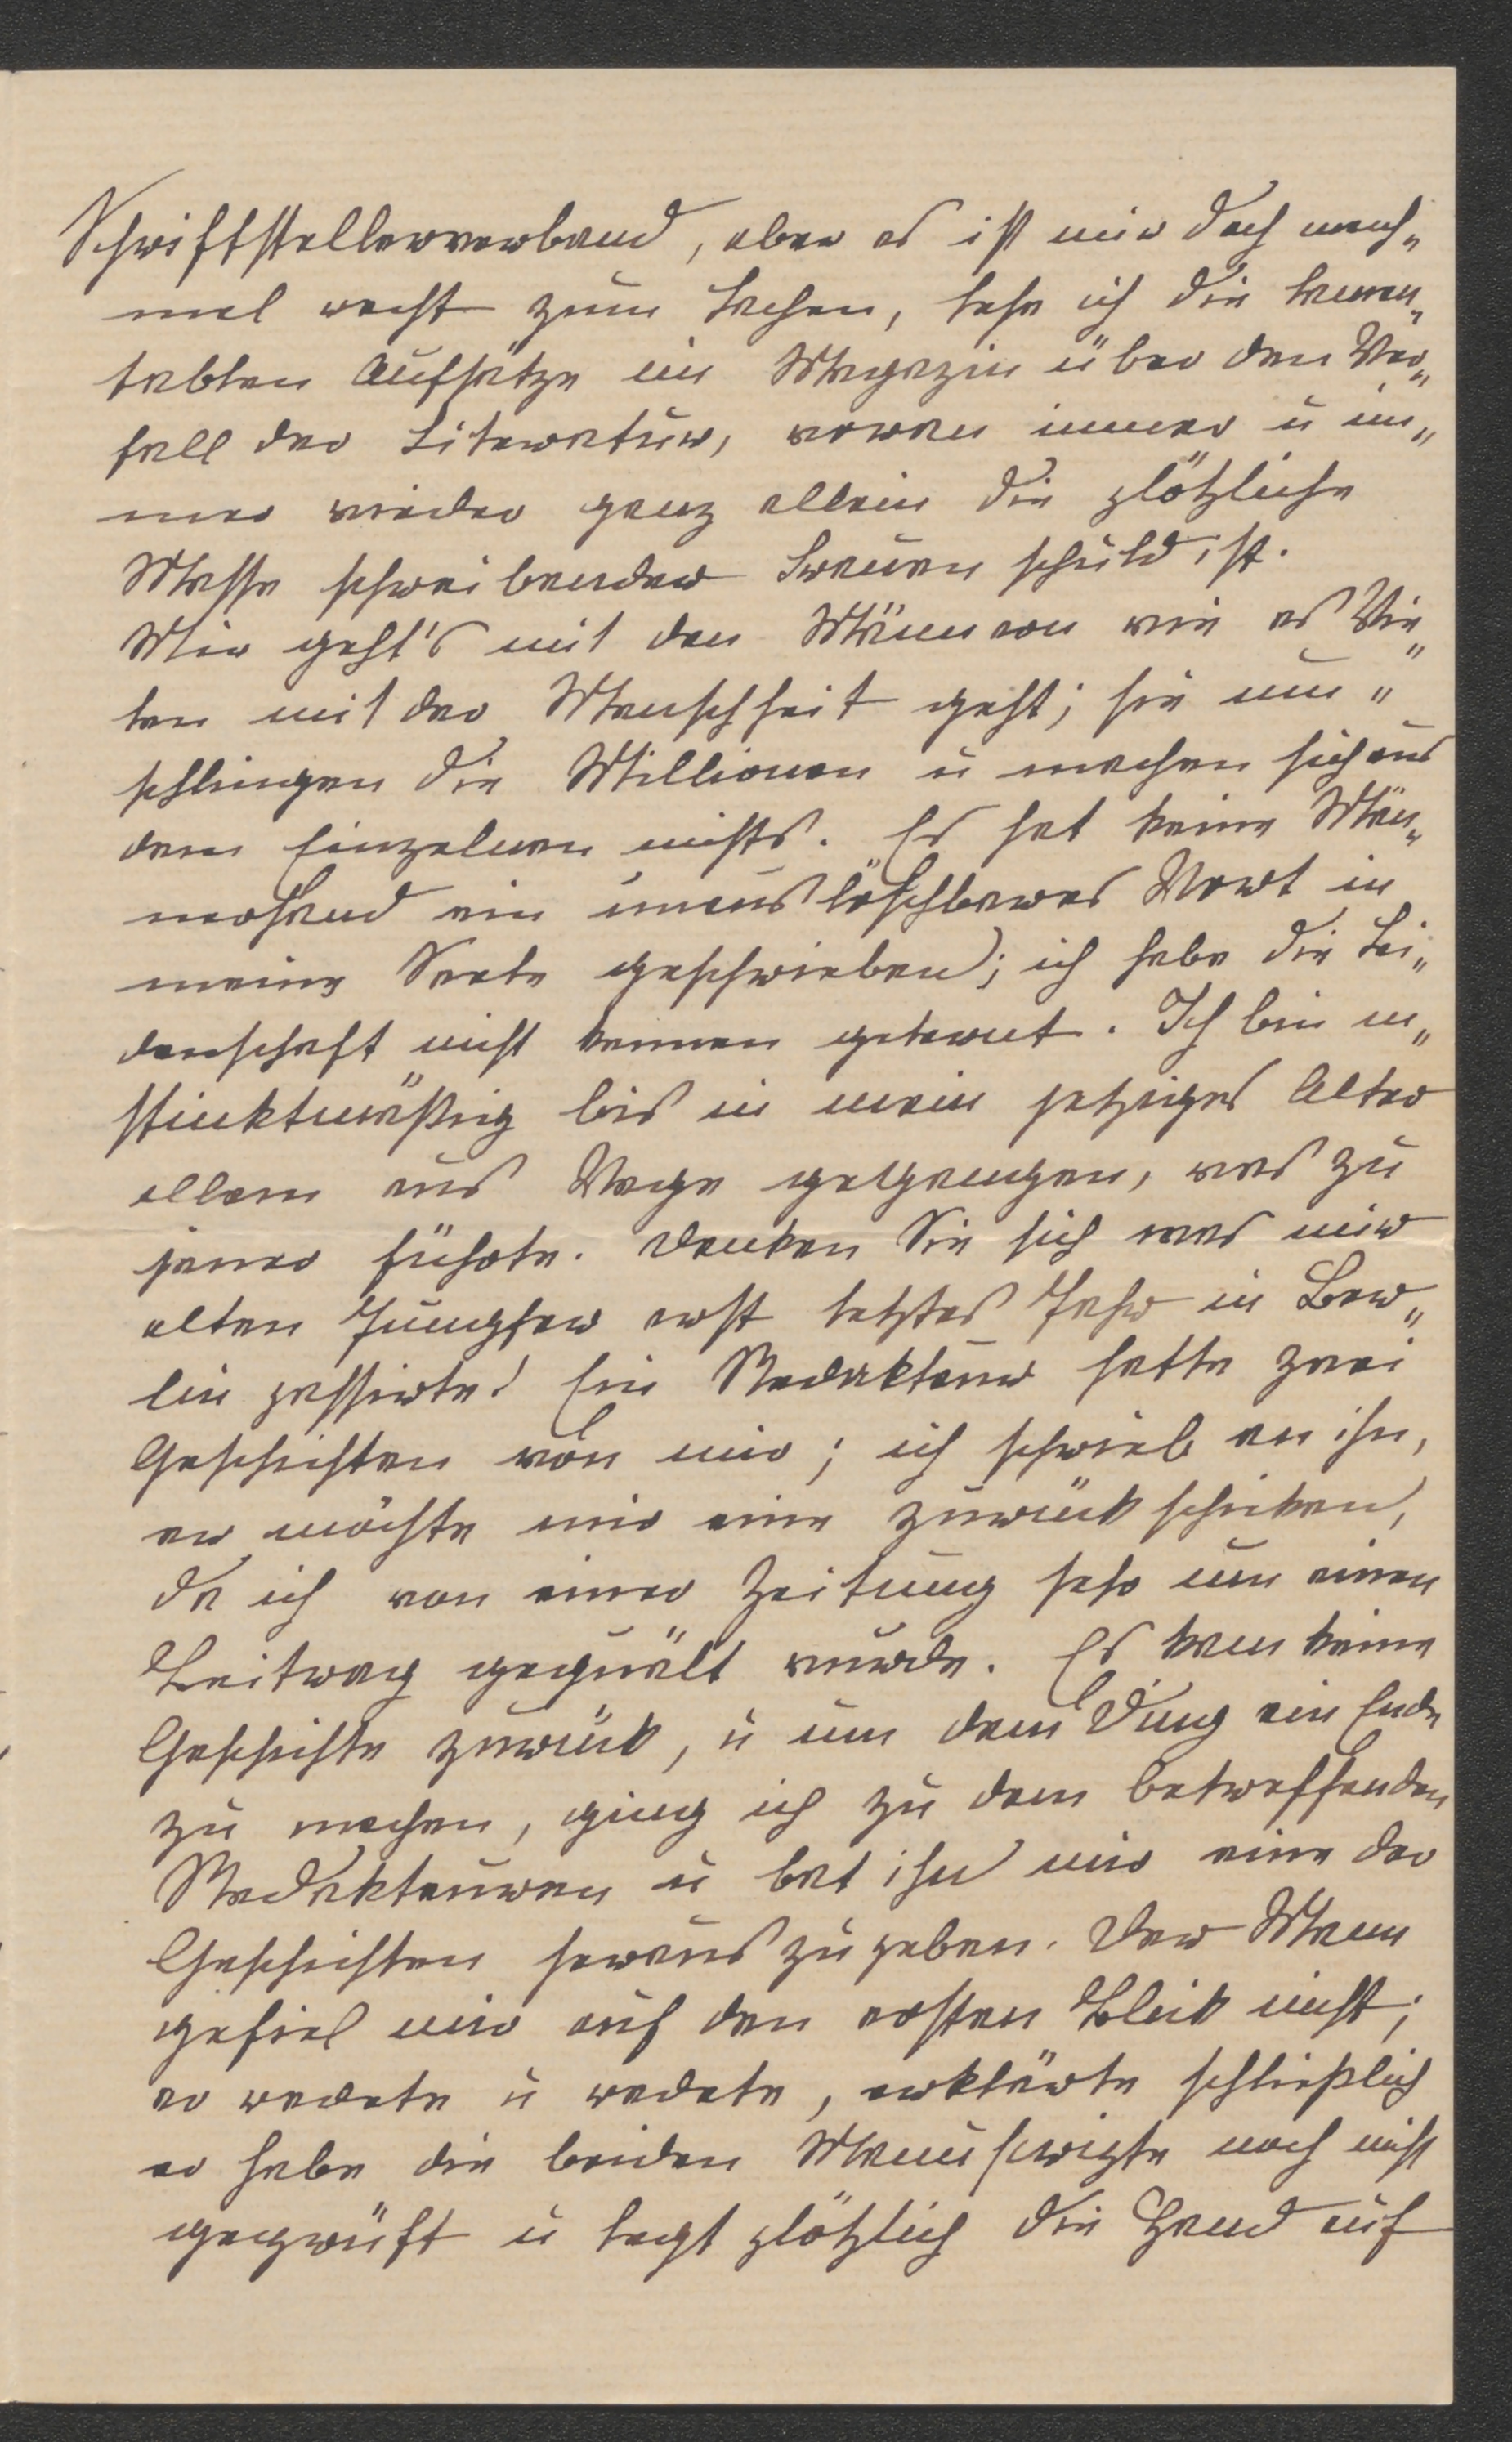 Schriftstellerverband, aber es ist mir doch manch„
mal recht zum Lachen, lese ich die lamen„
tablen Aufsätze im Magazin über den Ver„
fall der Literatur, woran immer u im„
mer wieder ganz allein die plötzliche
Masse schreibender Frauen schuld ist.
Mir geht's mit den Männern wie es Vie„
len mit der Menschheit geht; sie um„
schlingen die Millionen u machen sich aus
dem Einzelnen nichts. Es hat keine Män„
nerhand ein unauslöschbares Wort in
meine Seele geschrieben; ich habe die Lei„
denschaft nicht kennen gelernt. Ich bin in„
stinktmäßig bis in mein jetziges Alter
allem aus Wege gegangen, was zu
jener führte. Denken Sie sich was mir
alten Jungfer erst letztes Jahr in Ber„
lin passirte! Ein Redakteur hatte zwei
Geschichten von mir; ich schrieb an ihn,
er möchte mir eine zurück schicken,
da ich von einer Zeitung sehr um einen
Beitrag gequält wurde. Es kam keine
Geschichte zurück, u um dem Ding ein Ende
zu machen, ging ich zu dem betreffenden
Redakteuren u bat ihn mir eine der
Geschichten herauszugeben. Der Mann
gefiel mir auf den ersten Blick nicht;
er redete u redete, erklärte schließlich
er habe die beiden Manuscripte noch nicht
geprüft u legt plötzlich die Hand auf